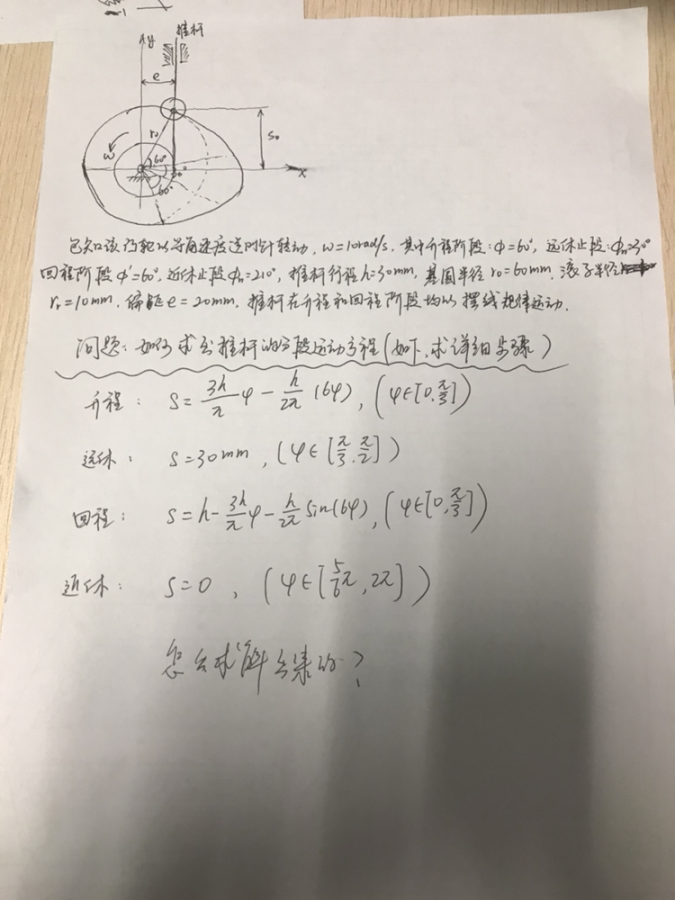 推杆
y
e
r₀
S₀
ω
60°
30°
60°
x
已知该凸轮以等角速度逆时针转动, ω=10rad/s, 其中升程阶段: Φ=60°, 远休止段:Φs=30°
回程阶段 Φ'=60°, 近休止段 Φs'=210°, 推杆行程 h=30mm, 基圆半径 r₀=60mm, 滚子半径
rᵣ=10mm, 偏距 e=20mm, 推杆在升程和回程阶段均以摆线规律运动.
问题: 如何求出推杆的分段运动方程(如下,求详细步骤)
升程: S=3h/π φ - h/2π (6φ), (φ∈[0,π/3])
远休: S=30mm, (φ∈[π/3,π/2])
回程: S=h-3h/π φ - h/2π sin(6φ), (φ∈[0,π/3])
近休: S=0, (φ∈[5/6π,2π])
怎么求解出来的?